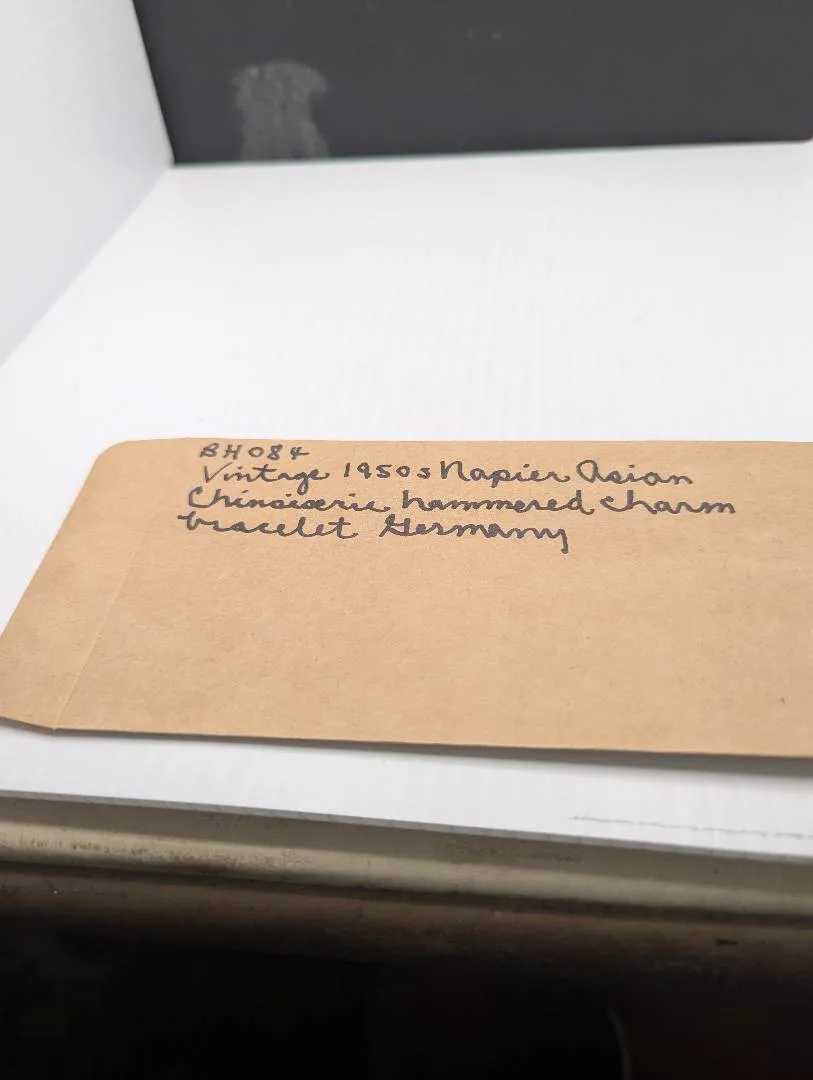 BH084
Vintage 1950s Napier Asian
Chinoiserie hammered charm
bracelet Germany